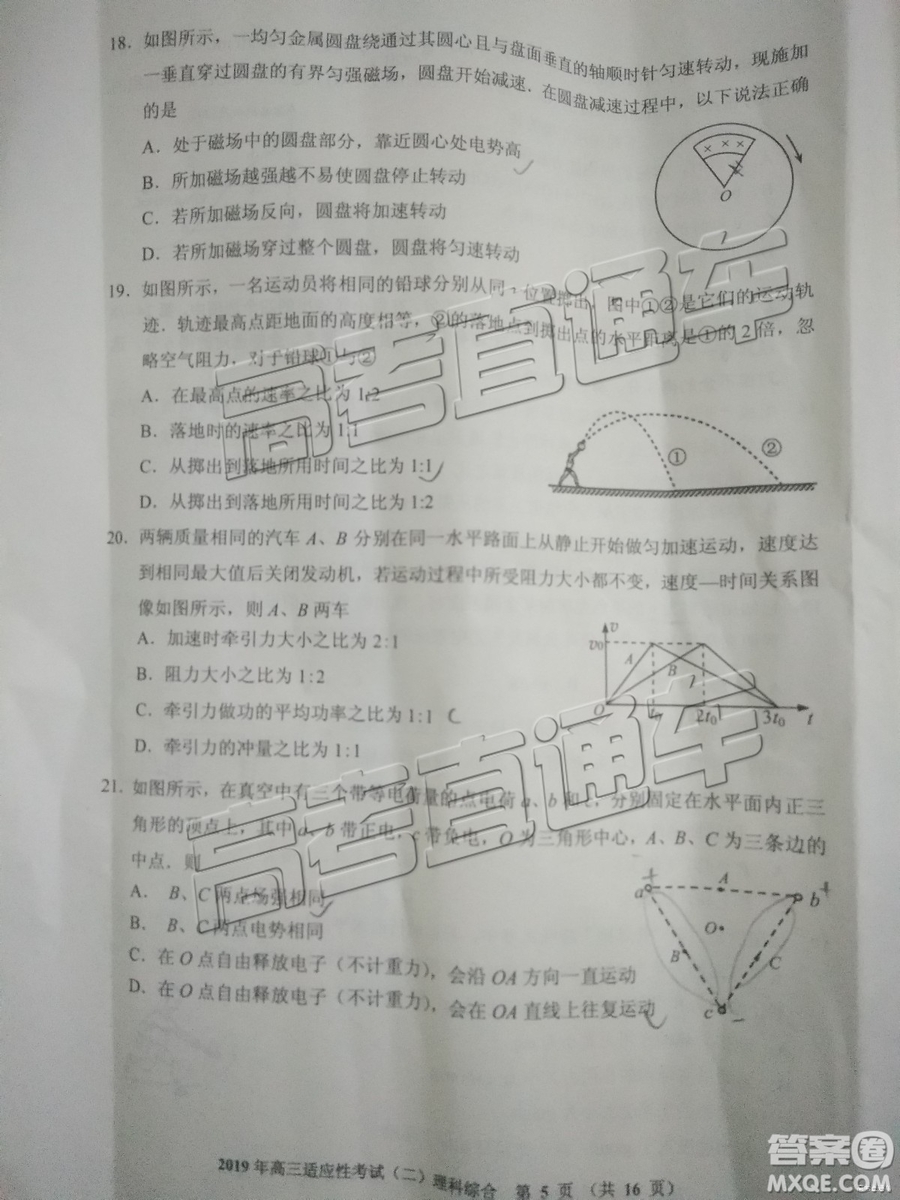 18．如图所示，一均匀金属圆盘绕通过其圆心且与盘面垂直的轴顺时针匀速转动，现施加
一垂直穿过圆盘的有界匀强磁场，圆盘开始减速．在圆盘减速过程中，以下说法正确
的是
A．处于磁场中的圆盘部分，靠近圆心处电势高
B．所加磁场越强越不易使圆盘停止转动
C．若所加磁场反向，圆盘将加速转动
D．若所加磁场穿过整个圆盘，圆盘将匀速转动
× × ×
× ×
O
19．如图所示，一名运动员将相同的铅球分别从同一位置掷出，图中①②是它们的运动轨
迹．轨迹最高点距地面的高度相等，②的落地点到掷出点的水平距离是①的 2 倍，忽
略空气阻力，对于铅球①与②
A．在最高点的速率之比为 1:2
B．落地时的速率之比为 1:1
C．从掷出到落地所用时间之比为 1:1
D．从掷出到落地所用时间之比为 1:2
① ②
20．两辆质量相同的汽车 A、B 分别在同一水平路面上从静止开始做匀加速运动，速度达
到相同最大值后关闭发动机，若运动过程中所受阻力大小都不变，速度—时间关系图
像如图所示，则 A、B 两车
A．加速时牵引力大小之比为 2:1
B．阻力大小之比为 1:2
C．牵引力做功的平均功率之比为 1:1 C
D．牵引力的冲量之比为 1:1
v
v₀
A B
O 2t₀ 3t₀ t
21．如图所示，在真空中有三个带等电荷量的点电荷 a、b 和 c，分别固定在水平面内正三
角形的顶点上，其中 a、b 带正电，c 带负电，O 为三角形中心，A、B、C 为三条边的
中点．则
A． B、C 两点场强相同
B． B、C 两点电势相同
C．在 O 点自由释放电子（不计重力），会沿 OA 方向一直运动
D．在 O 点自由释放电子（不计重力），会在 OA 直线上往复运动
+ A +
a b
O
B C
c −
高考直通车
高考直通车
2019 年高三适应性考试（二）理科综合 第 5 页 （共 16 页）
答案圈
MXQE.COM